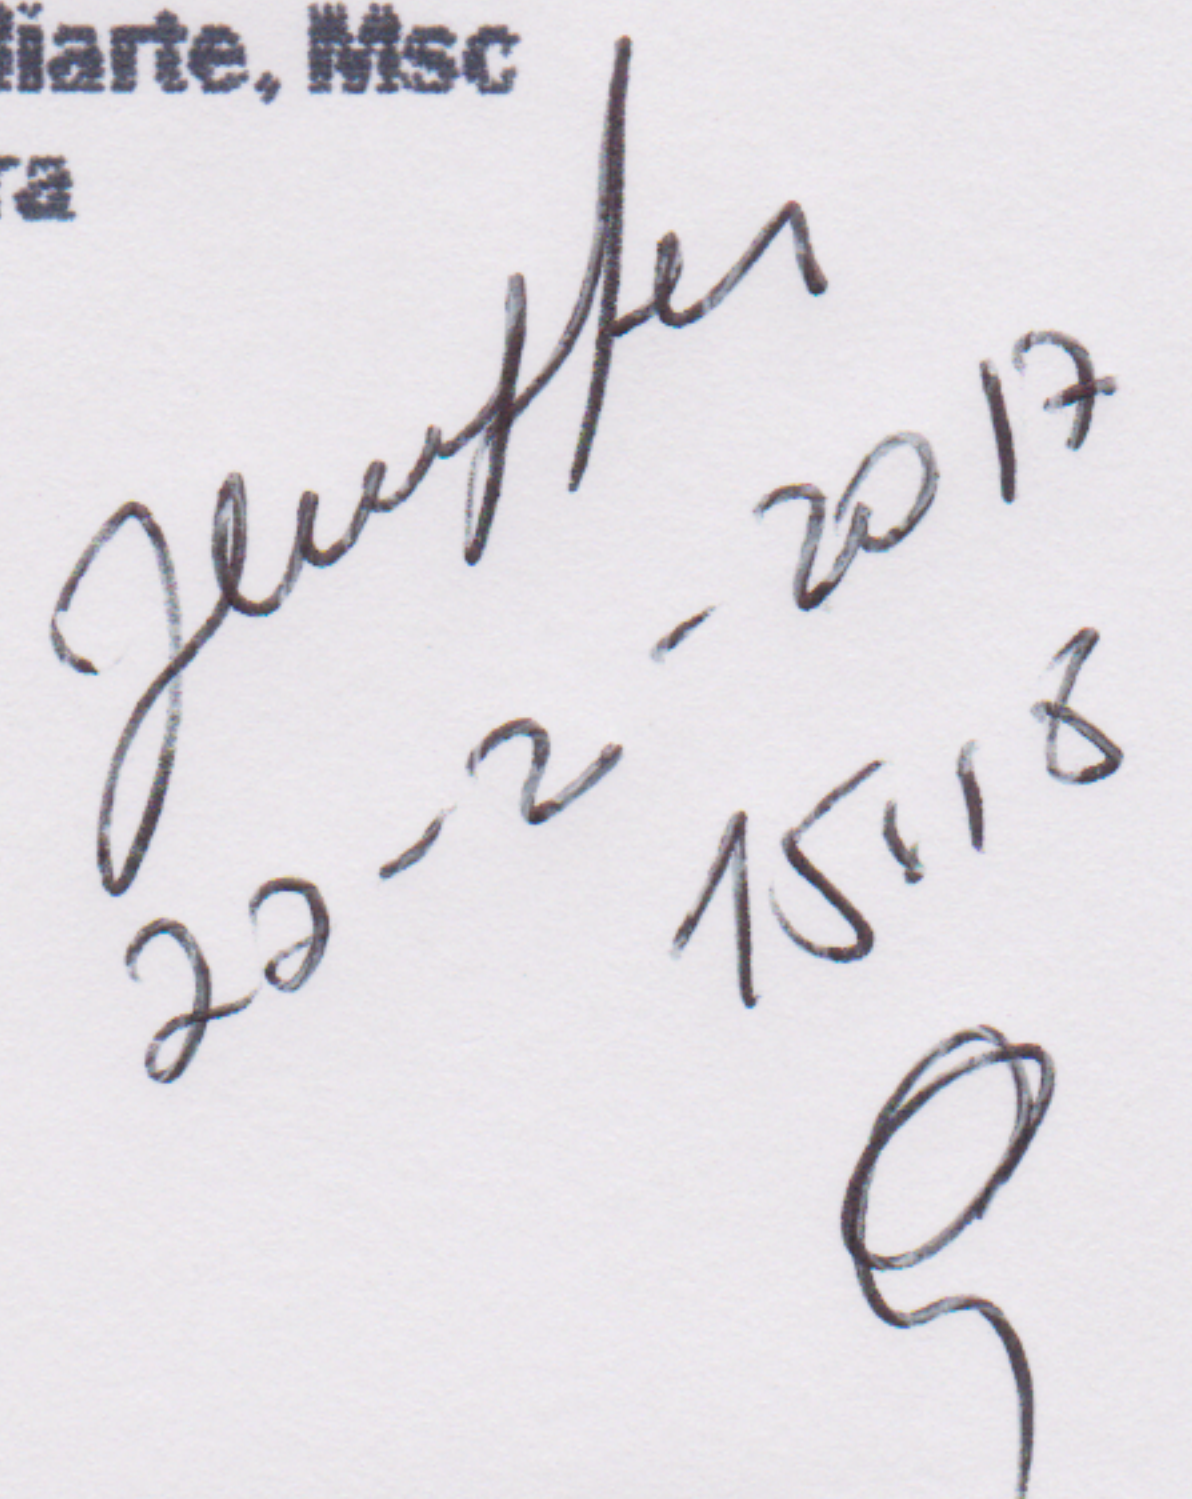 liarte, Msc
ra
Jennyffer
22-2-2017
15:18